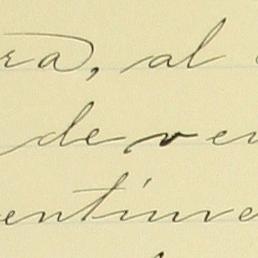 ra, al
de ver
entime